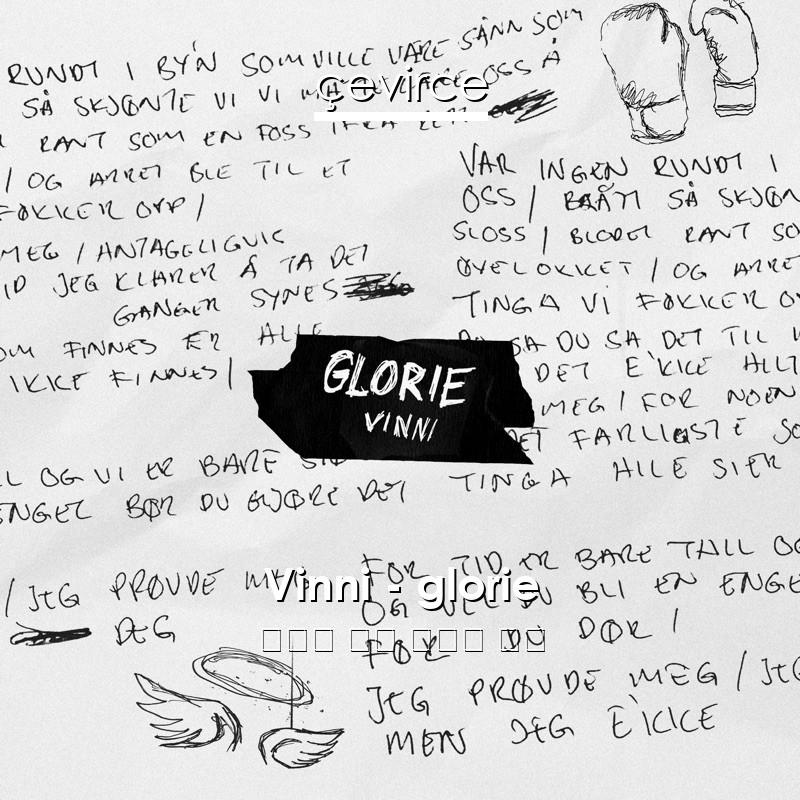 RUNDT I BY'N SOM VILLE VÆRE SÅNN SOM
SÅ SKJØNTE VI VI OSS Å
RANT SOM EN FOSS IFRA
/ OG ARRET BLE TIL ET
FØKKER OPP /
MEG / ANTAGELIGVIS
JEG KLARER Å TA DET
GANGER SYNES
FINNES ER ALLE
IKKE FINNES /
çevirce
VAR INGEN RUNDT I
OSS / SÅ SKJØN
SLOSS / BLODET RANT SO
ØYELOKKET / OG ARRE
TINGA VI FØKKER O
SA DU SA DET TIL
DET E'KKE
MEG / FOR NOEN
DET FARLIGSTE SO
TINGA SIER
GLORIE
VINNI
OG VI ER BARE
ENGEL BØR DU GJØRE DET
/ JEG PRØVDE MEG
DEG
Vinni - glorie
FOR TID ER BARE TALL OG
OG DU BLI EN ENGE
FØR DU DØR /
JEG PRØVDE MEG / JEG
MEN JEG E'KKE